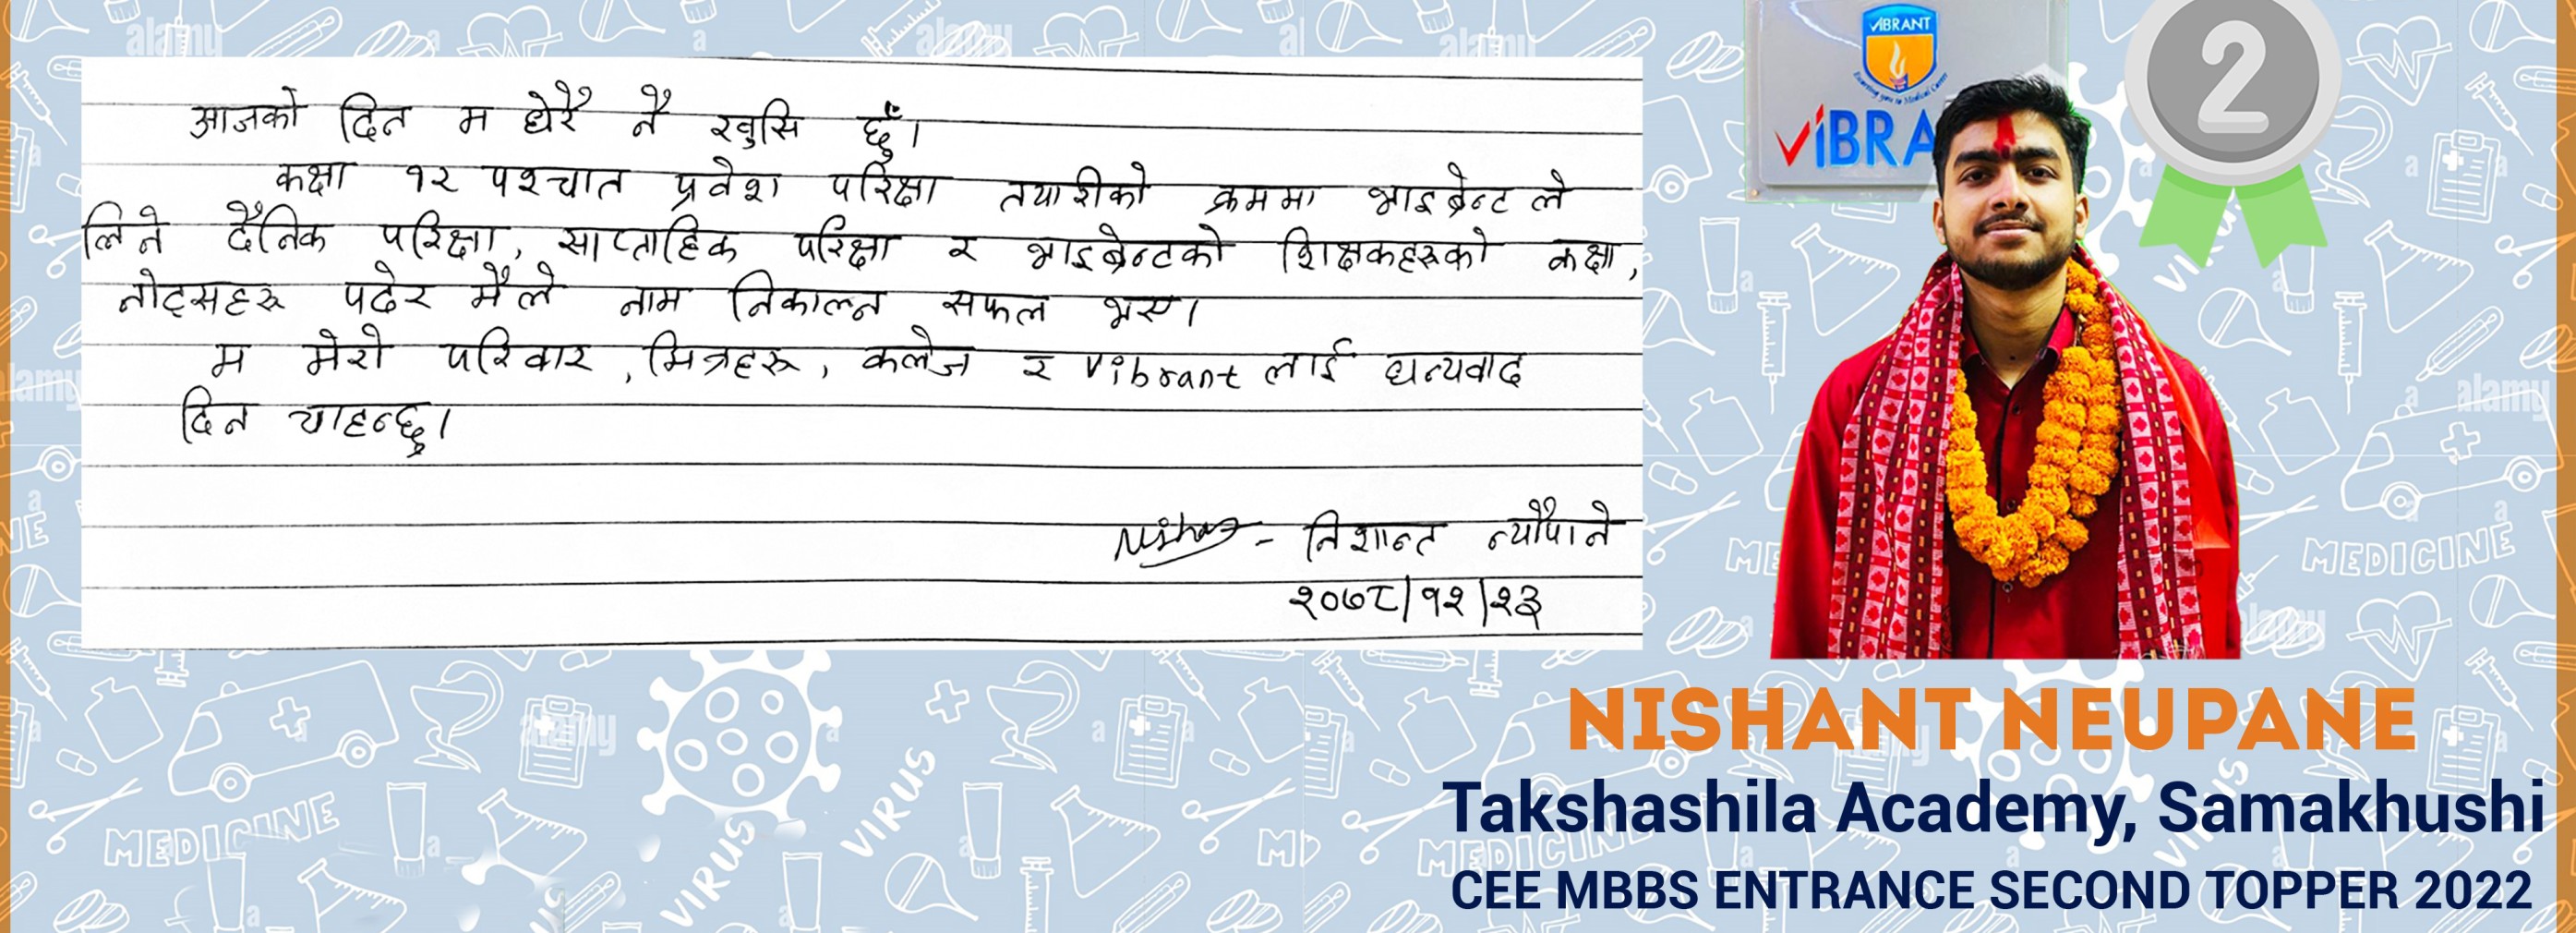 आजको दिन म धेरै नै खुसि छुँ।
कक्षा १२ पश्चात प्रवेश परिक्षा तयारीको क्रममा भाइब्रेन्ट ले
लिने दैनिक परिक्षा, साप्ताहिक परिक्षा र भाइब्रेन्टको शिक्षकहरुको कक्षा,
नोट्सहरु पढेर मैले नाम निकाल्न सफल भए।
म मेरो परिवार, मित्रहरु, कलेज र Vibrant लाई धन्यवाद
दिन चाहन्छु।
- निशान्त न्यौपाने
२०७८/१२/२३
VIBRANT
ViBRA
2
NISHANT NEUPANE
Takshashila Academy, Samakhushi
CEE MBBS ENTRANCE SECOND TOPPER 2022
MEDICINE
MEDICINE
MEDICINE
VIRUS
VIRUS
alamy
alamy
alamy
alamy